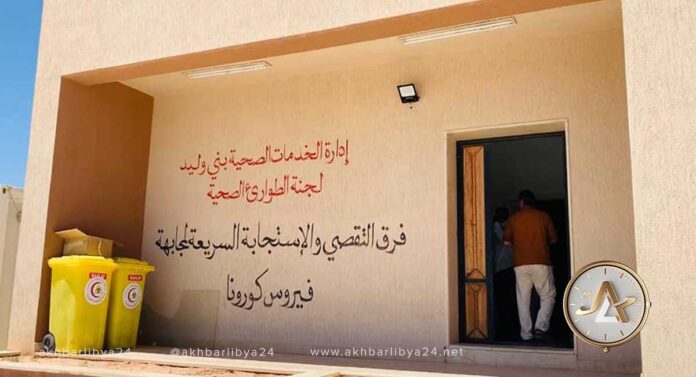 إدارة الخدمات الصحية بني وليد
لجنة الطوارئ الصحية
فرق التقصي والإستجابة السريعة لمجابهة
فيروس كورونا
akhbarlibya24
@akhbarlibya24
www.akhbarlibya24.net